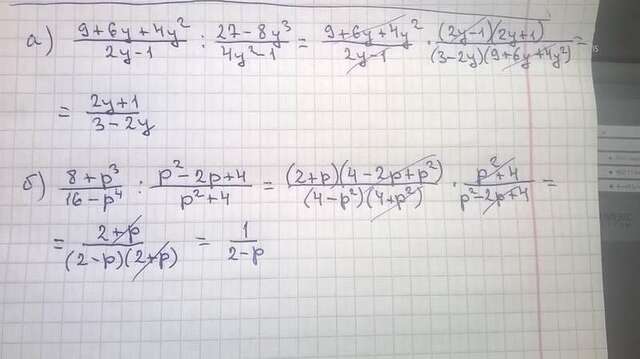 а) (9+6y+4y²)/(2y-1) : (27-8y³)/(4y²-1) = (9+6y+4y²)/(2y-1) · ((2y-1)(2y+1))/((3-2y)(9+6y+4y²)) =
= (2y+1)/(3-2y)
б) (8+p³)/(16-p⁴) : (p²-2p+4)/(p²+4) = ((2+p)(4-2p+p²))/((4-p²)(4+p²)) · (p²+4)/(p²-2p+4) =
= (2+p)/((2-p)(2+p)) = 1/(2-p)